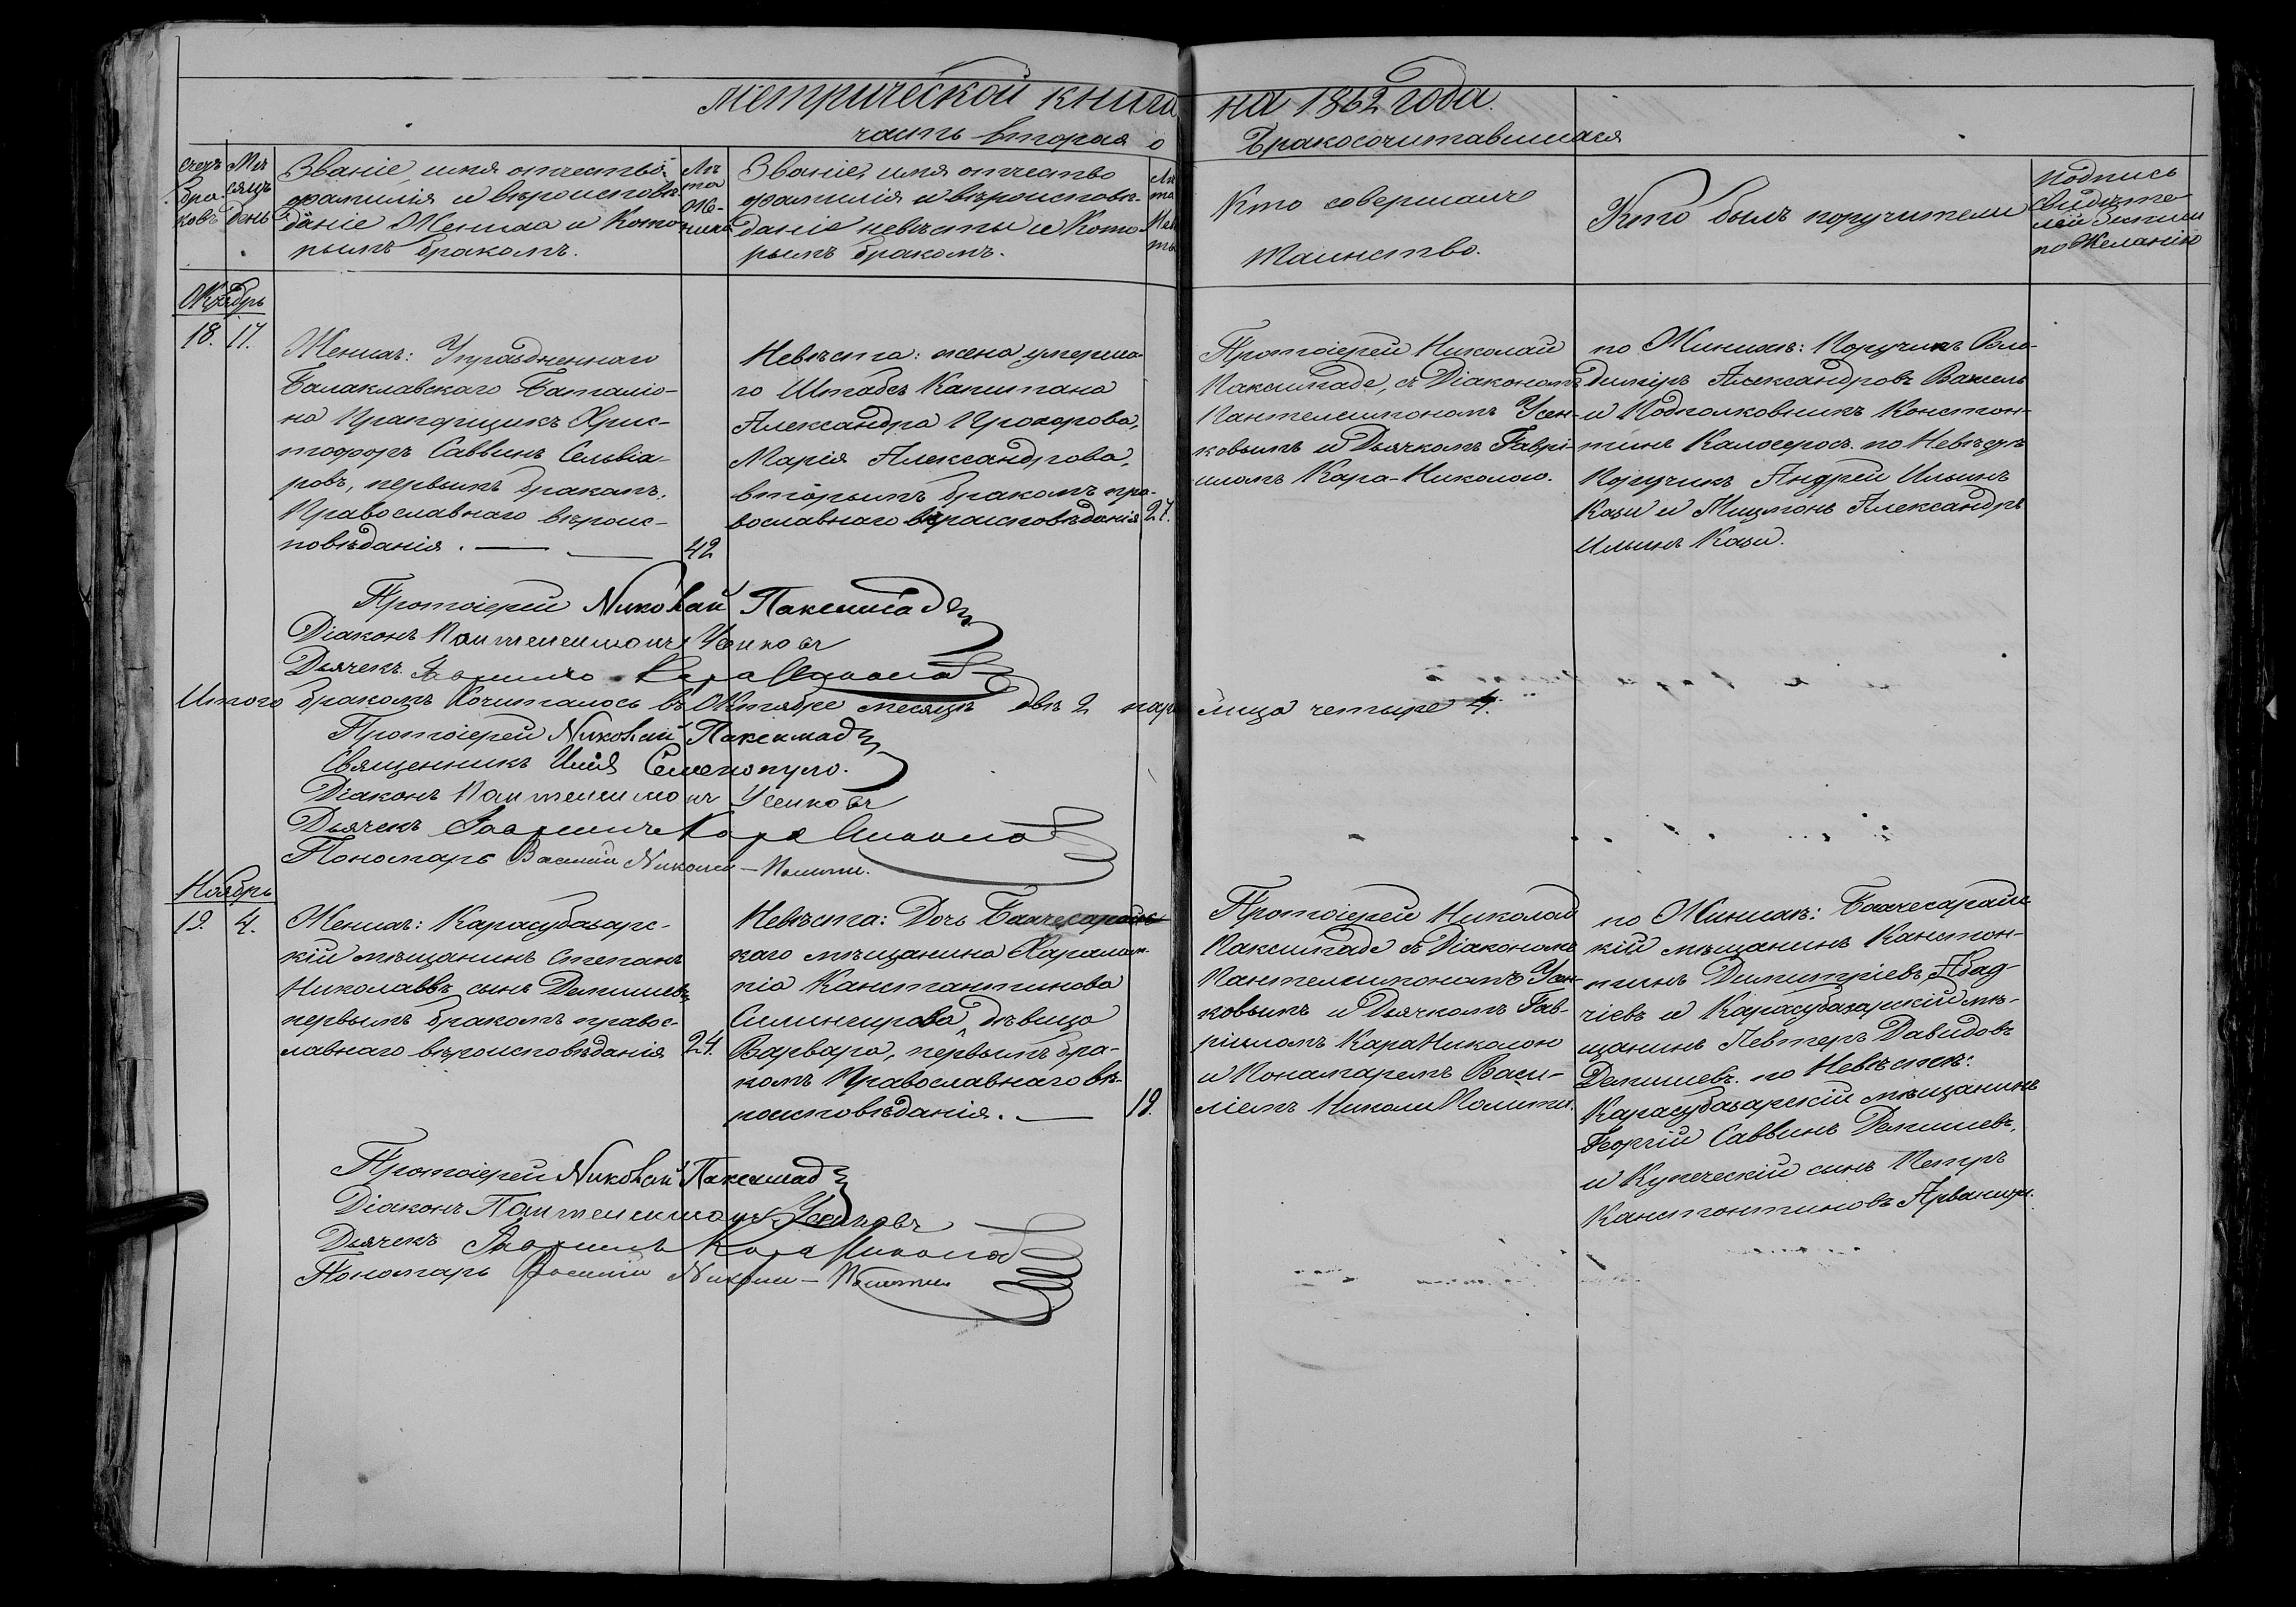 Метрической книги на 1862 года.
часть вторая о Бракосочитавшихся
Счетъ Бра-ковъ
Мѣ-сяцъ День
Званіе, имя отчество
фамилія и вѣроисповѣ-
даніе Жениха и Кото-
рымъ бракомъ.
Лѣ-
та
Же-
ниха
Званіе, имя отчество
фамилія и вѣроисповѣ-
даніе невѣсты и Кото-
рымъ бракомъ.
Лѣ-
та
Кто совершалъ
Таинство.
Кто былъ поручители
Подпись
свидѣте
лей
по Желанію
Октябрь
18. 17.
Женихъ: Упраздненнаго
Балаклавскаго Баталіо-
на Прапорщикъ Хрис-
тофоръ Саввинъ Сельвіа-
ровъ, первымъ бракомъ.
Православнаго вѣроис-
повѣданія. 42
Невѣста: жена умерша-
го Штабсъ Капитана
Александра Прохорова,
Марія Александрова,
вторымъ бракомъ пра-
вославнаго вѣроисповѣданія 27.
Протоіерей Николай
Паксимаде, съ Діакономъ
Пантелеимономъ Усен-
ковымъ и Дьячкомъ Гаврі-
иломъ Кара-Николою.
по Женихѣ: Поручикъ Вла-
димиръ Александровъ
и Подполковникъ Констан-
тинъ Калосеросъ. по Невѣстѣ
Поручикъ Андрей Ильинъ
Кази и Мичманъ Александръ
Ильинъ Кази.
Протоіерей Николай Паксимаде
Діаконъ Пантелеимонъ Усенковъ
Дьячекъ Гавриилъ Кара Никола
Итого бракомъ Сочиталось въ Октябре месяцѣ двѣ 2 пары лица четыре 4.
Протоіерей Николай Паксимаде
Священникъ Илія Селенопуло.
Діаконъ Пантелеимонъ Усенковъ
Дьячекъ Гавриилъ Кара Никола
Пономарь Василій Николи-Полити.
Ноябрь
19. 4.
Женихъ: Карасубазарс-
кій мѣщанинъ Степанъ
Николаевъ сынъ Демишевъ
первымъ бракомъ правос-
лавнаго вѣроисповѣданія 24.
Невѣста: Дочь Бахчесарайс-
каго мѣщанина Харалам-
піа Канстантинова
дѣвица
Варвара, первымъ бра-
комъ Православнаго вѣ-
роисповѣданія. 19.
Протоіерей Николай
Паксимаде съ Діакономъ
Пантелеимономъ Усен-
ковымъ и Дьячкомъ Гав-
ріиломъ Кара Николою
и Понамаремъ Васи-
ліемъ Николи Полити.
по Женихѣ: Бахчесарайс-
кій мѣщанинъ Канстан-
тинъ Димитріевъ Абад-
чіевъ и Карасубазарскій мѣ-
щанинъ Левтеръ Давидовъ
Демишевъ. по Невѣстѣ:
Карасубазарскій мѣщанинъ
Георгій Саввинъ Демишевъ,
и Купеческій сынъ Петръ
Канстантиновъ Арванити.
Протоіерей Николай Паксимаде
Діаконъ Пантелеимонъ Усенковъ
Дьячекъ Гавриилъ Кара Никола
Пономарь Василій Николи-Полити